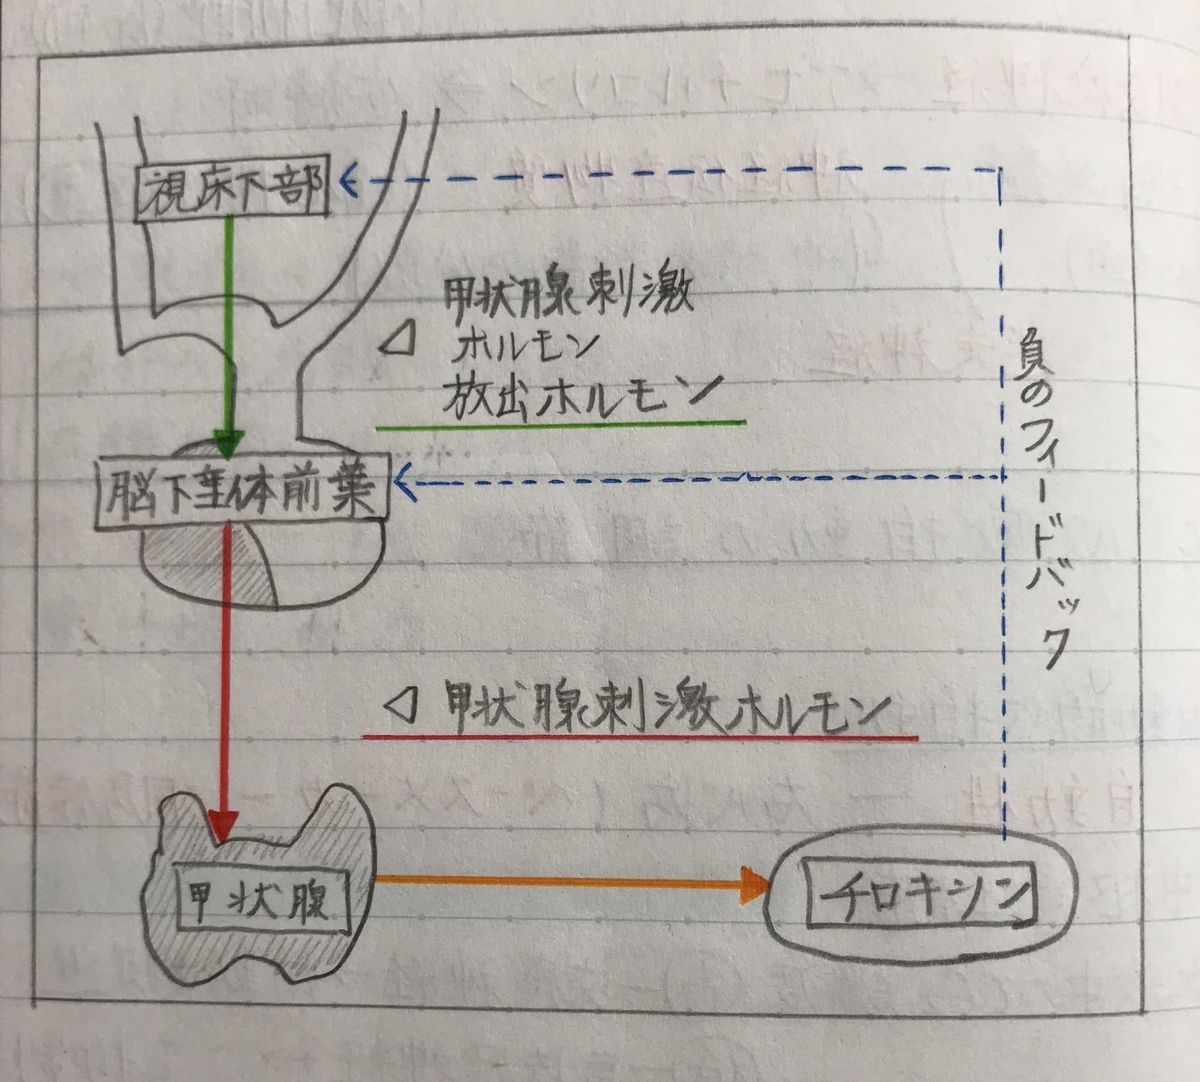 視床下部
甲状腺刺激
ホルモン
放出ホルモン
負のフィードバック
脳下垂体前葉
甲状腺刺激ホルモン
甲状腺
チロキシン